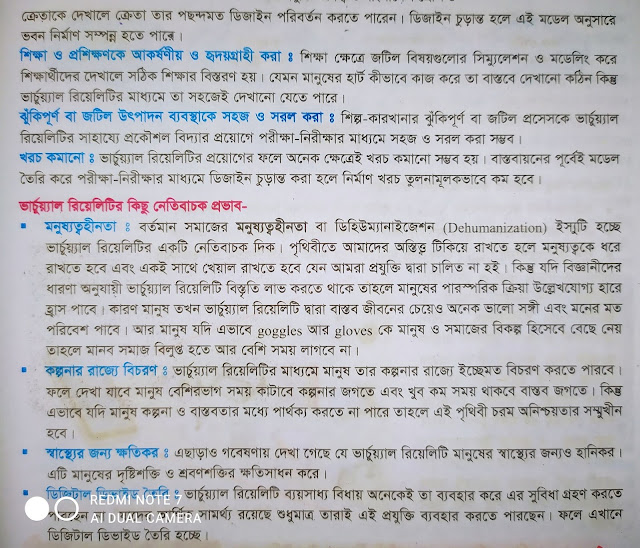 ক্রেতাকে দেখালে ক্রেতা তার পছন্দমত ডিজাইন পরিবর্তন করতে পারেন। ডিজাইন চূড়ান্ত হলে এই মডেল অনুসারে
ভবন নির্মাণ সম্পন্ন হতে পারে।
শিক্ষা ও প্রশিক্ষণকে আকর্ষণীয় ও হৃদয়গ্রাহী করা ঃ শিক্ষা ক্ষেত্রে জটিল বিষয়গুলোর সিম্যুলেশন ও মডেলিং করে
শিক্ষার্থীদের দেখালে সঠিক শিক্ষার বিস্তরণ হয়। যেমন মানুষের হার্ট কীভাবে কাজ করে তা বাস্তবে দেখানো কঠিন কিন্তু
ভার্চুয়্যাল রিয়েলিটির মাধ্যমে তা সহজেই দেখানো যেতে পারে।
ঝুঁকিপূর্ণ বা জটিল উৎপাদন ব্যবস্থাকে সহজ ও সরল করা ঃ শিল্প-কারখানার ঝুঁকিপূর্ণ বা জটিল প্রসেসকে ভার্চুয়্যাল
রিয়েলিটির সাহায্যে প্রকৌশল বিদ্যার প্রয়োগে পরীক্ষা-নিরীক্ষার মাধ্যমে সহজ ও সরল করা সম্ভব।
খরচ কমানো ঃ ভার্চুয়্যাল রিয়েলিটির প্রয়োগের ফলে অনেক ক্ষেত্রেই খরচ কমানো সম্ভব হয়। বাস্তবায়নের পূর্বেই মডেল
তৈরি করে পরীক্ষা-নিরীক্ষার মাধ্যমে ডিজাইন চূড়ান্ত করা হলে নির্মাণ খরচ তুলনামূলকভাবে কম হবে।
ভার্চুয়্যাল রিয়েলিটির কিছু নেতিবাচক প্রভাব-
▪ মনুষ্যত্বহীনতা ঃ বর্তমান সমাজের মনুষ্যত্বহীনতা বা ডিহিউম্যানাইজেশন (Dehumanization) ইস্যুটি হচ্ছে
ভার্চুয়্যাল রিয়েলিটির একটি নেতিবাচক দিক। পৃথিবীতে আমাদের অস্তিত্ব টিকিয়ে রাখতে হলে মনুষ্যত্বকে ধরে
রাখতে হবে এবং একই সাথে খেয়াল রাখতে হবে যেন আমরা প্রযুক্তি দ্বারা চালিত না হই। কিন্তু যদি বিজ্ঞানীদের
ধারণা অনুযায়ী ভার্চুয়্যাল রিয়েলিটি বিস্তৃতি লাভ করতে থাকে তাহলে মানুষের পারস্পরিক ক্রিয়া উল্লেখযোগ্য হারে
হ্রাস পাবে। কারণ মানুষ তখন ভার্চুয়্যাল রিয়েলিটি দ্বারা বাস্তব জীবনের চেয়েও অনেক ভালো সঙ্গী এবং মনের মত
পরিবেশ পাবে। আর মানুষ যদি এভাবে goggles আর gloves কে মানুষ ও সমাজের বিকল্প হিসেবে বেছে নেয়
তাহলে মানব সমাজ বিলুপ্ত হতে আর বেশি সময় লাগবে না।
▪ কল্পনার রাজ্যে বিচরণ ঃ ভার্চুয়্যাল রিয়েলিটির মাধ্যমে মানুষ তার কল্পনার রাজ্যে ইচ্ছেমত বিচরণ করতে পারবে।
ফলে দেখা যাবে মানুষ বেশিরভাগ সময় কাটাবে কল্পনার জগতে এবং খুব কম সময় থাকবে বাস্তব জগতে। কিন্তু
এভাবে যদি মানুষ কল্পনা ও বাস্তবতার মধ্যে পার্থক্য করতে না পারে তাহলে এই পৃথিবী চরম অনিশ্চয়তার সম্মুখীন
হবে।
▪ স্বাস্থ্যের জন্য ক্ষতিকর ঃ এছাড়াও গবেষণায় দেখা গেছে যে ভার্চুয়্যাল রিয়েলিটি মানুষের স্বাস্থ্যের জন্যও হানিকর।
এটি মানুষের দৃষ্টিশক্তি ও শ্রবণশক্তির ক্ষতিসাধন করে।
▪ ডিজিটাল ডিভাইড তৈরি ঃ ভার্চুয়্যাল রিয়েলিটি ব্যয়সাধ্য বিধায় অনেকেই তা ব্যবহার করে এর সুবিধা গ্রহণ করতে
সামর্থ্য রয়েছে শুধুমাত্র তারাই এই প্রযুক্তি ব্যবহার করতে পারছেন। ফলে এখানে
ডিজিটাল ডিভাইড তৈরি হচ্ছে।
REDMI NOTE 7
AI DUAL CAMERA